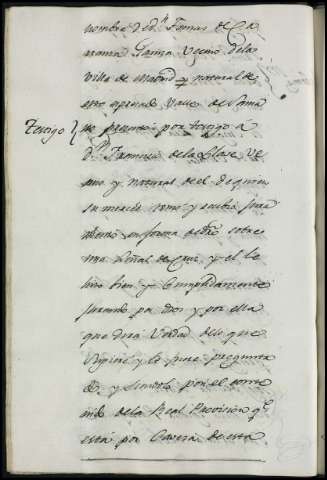 nombre de dn. Tomas de Ca
rranza Vecino de la
Villa de Madrid y natural de
este Valle de Soma
Testigo } no presentó por testigo á
Dn. Francisco de la Llave Ve
cino y natural de el de quien
su merced tomo y recibio jura
mento en forma de dro. sobre
una Señal de Cruz, y el le
hizo bien y Cumplidamente
jurando por Dios y por ella
que dirá Verdad delo que
supiere y le fuere pregunta
do y siendolo por el conte
nido de la Real Provision qe.
está por Cavera de esta